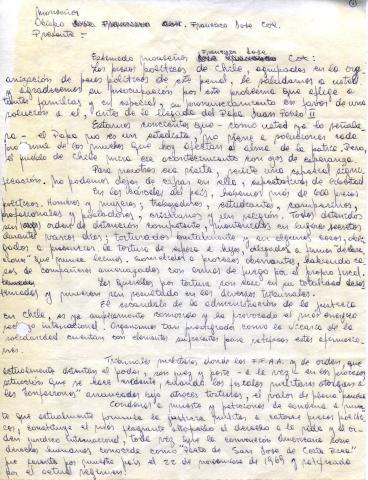 Monseñor
Obispo Francisco José Cox.
Presente.-
Francisco José
Estimado monseñor Cox:
Los presos políticos de Chile, agrupados en la org
anización de presos políticos de este penal, le saludamos a usted
y agradecemos su preocupación por este problema que aflige a
tantas familias y en especial, su pronunciamiento en favor de una
solución a él, antes de la llegada del Papa Juan Pablo II
Estamos conscientes que - como usted ya lo señala
ra - el Papa no es un estadista, no viene a solucionar cada
uno de los puntos que hoy afectan el alma de la patria. Pero,
el pueblo de Chile mira ese acontecimiento con ojos de esperanza.
Para nosotros esa visita, reviste una especial signi-
ficación, no podemos dejar de cifrar en ella, expectativas de libertad
En las cárceles del país, habemos más de 600 presos
políticos. Hombres y mujeres, trabajadores, estudiantes, campesinos,
profesionales y pobladores, cristianos y sin religión. Todos detenidos
sin orden de detención competente, mantenidos en lugares secretos
durante varios días, torturados brutalmente y en algunos casos, obli-
gados a presenciar la tortura de esposa e hijo, obligados a firmar declara
ciones que nunca leímos, sometidos a procesos aberrantes, habiendo ca
sos de compañeros amenazados con armas de fuego por el propio fiscal.
Las querellas por tortura son casi en su totalidad deses
timadas y mueren sin resultado en los diversos tribunales.
El escándalo de la administración de la justicia
en Chile, es ya ampliamente conocido y ha provocado el más enérgico
rechazo internacional. Organismos tan prestigiados como la vicaría de la
solidaridad cuentan con elementos suficientes para ratificar estas afirmacio
nes.
Tribunales militares, donde las F.F.A.A. y de orden, que
actualmente detentan el poder, son juez y parte - a la vez - en los procesos
situación que se hace evidente, cuando los fiscales militares otorgan a
las "confesiones" arrancadas bajo atroces torturas, el valor de plena prueba
Condenas a muerte y peticiones de condena a muer
te que actualmente formula la justicia militar a varios presos políti-
cos, constituye el más flagrante atropello al derecho a la vida y al or
den jurídico internacional, toda vez que la convención americana sobre
derechos humanos conocida como "Pacto de San José de Costa Rica"
fue firmada por nuestro país el 22 de noviembre de 1969 y ratificado
por el actual régimen.